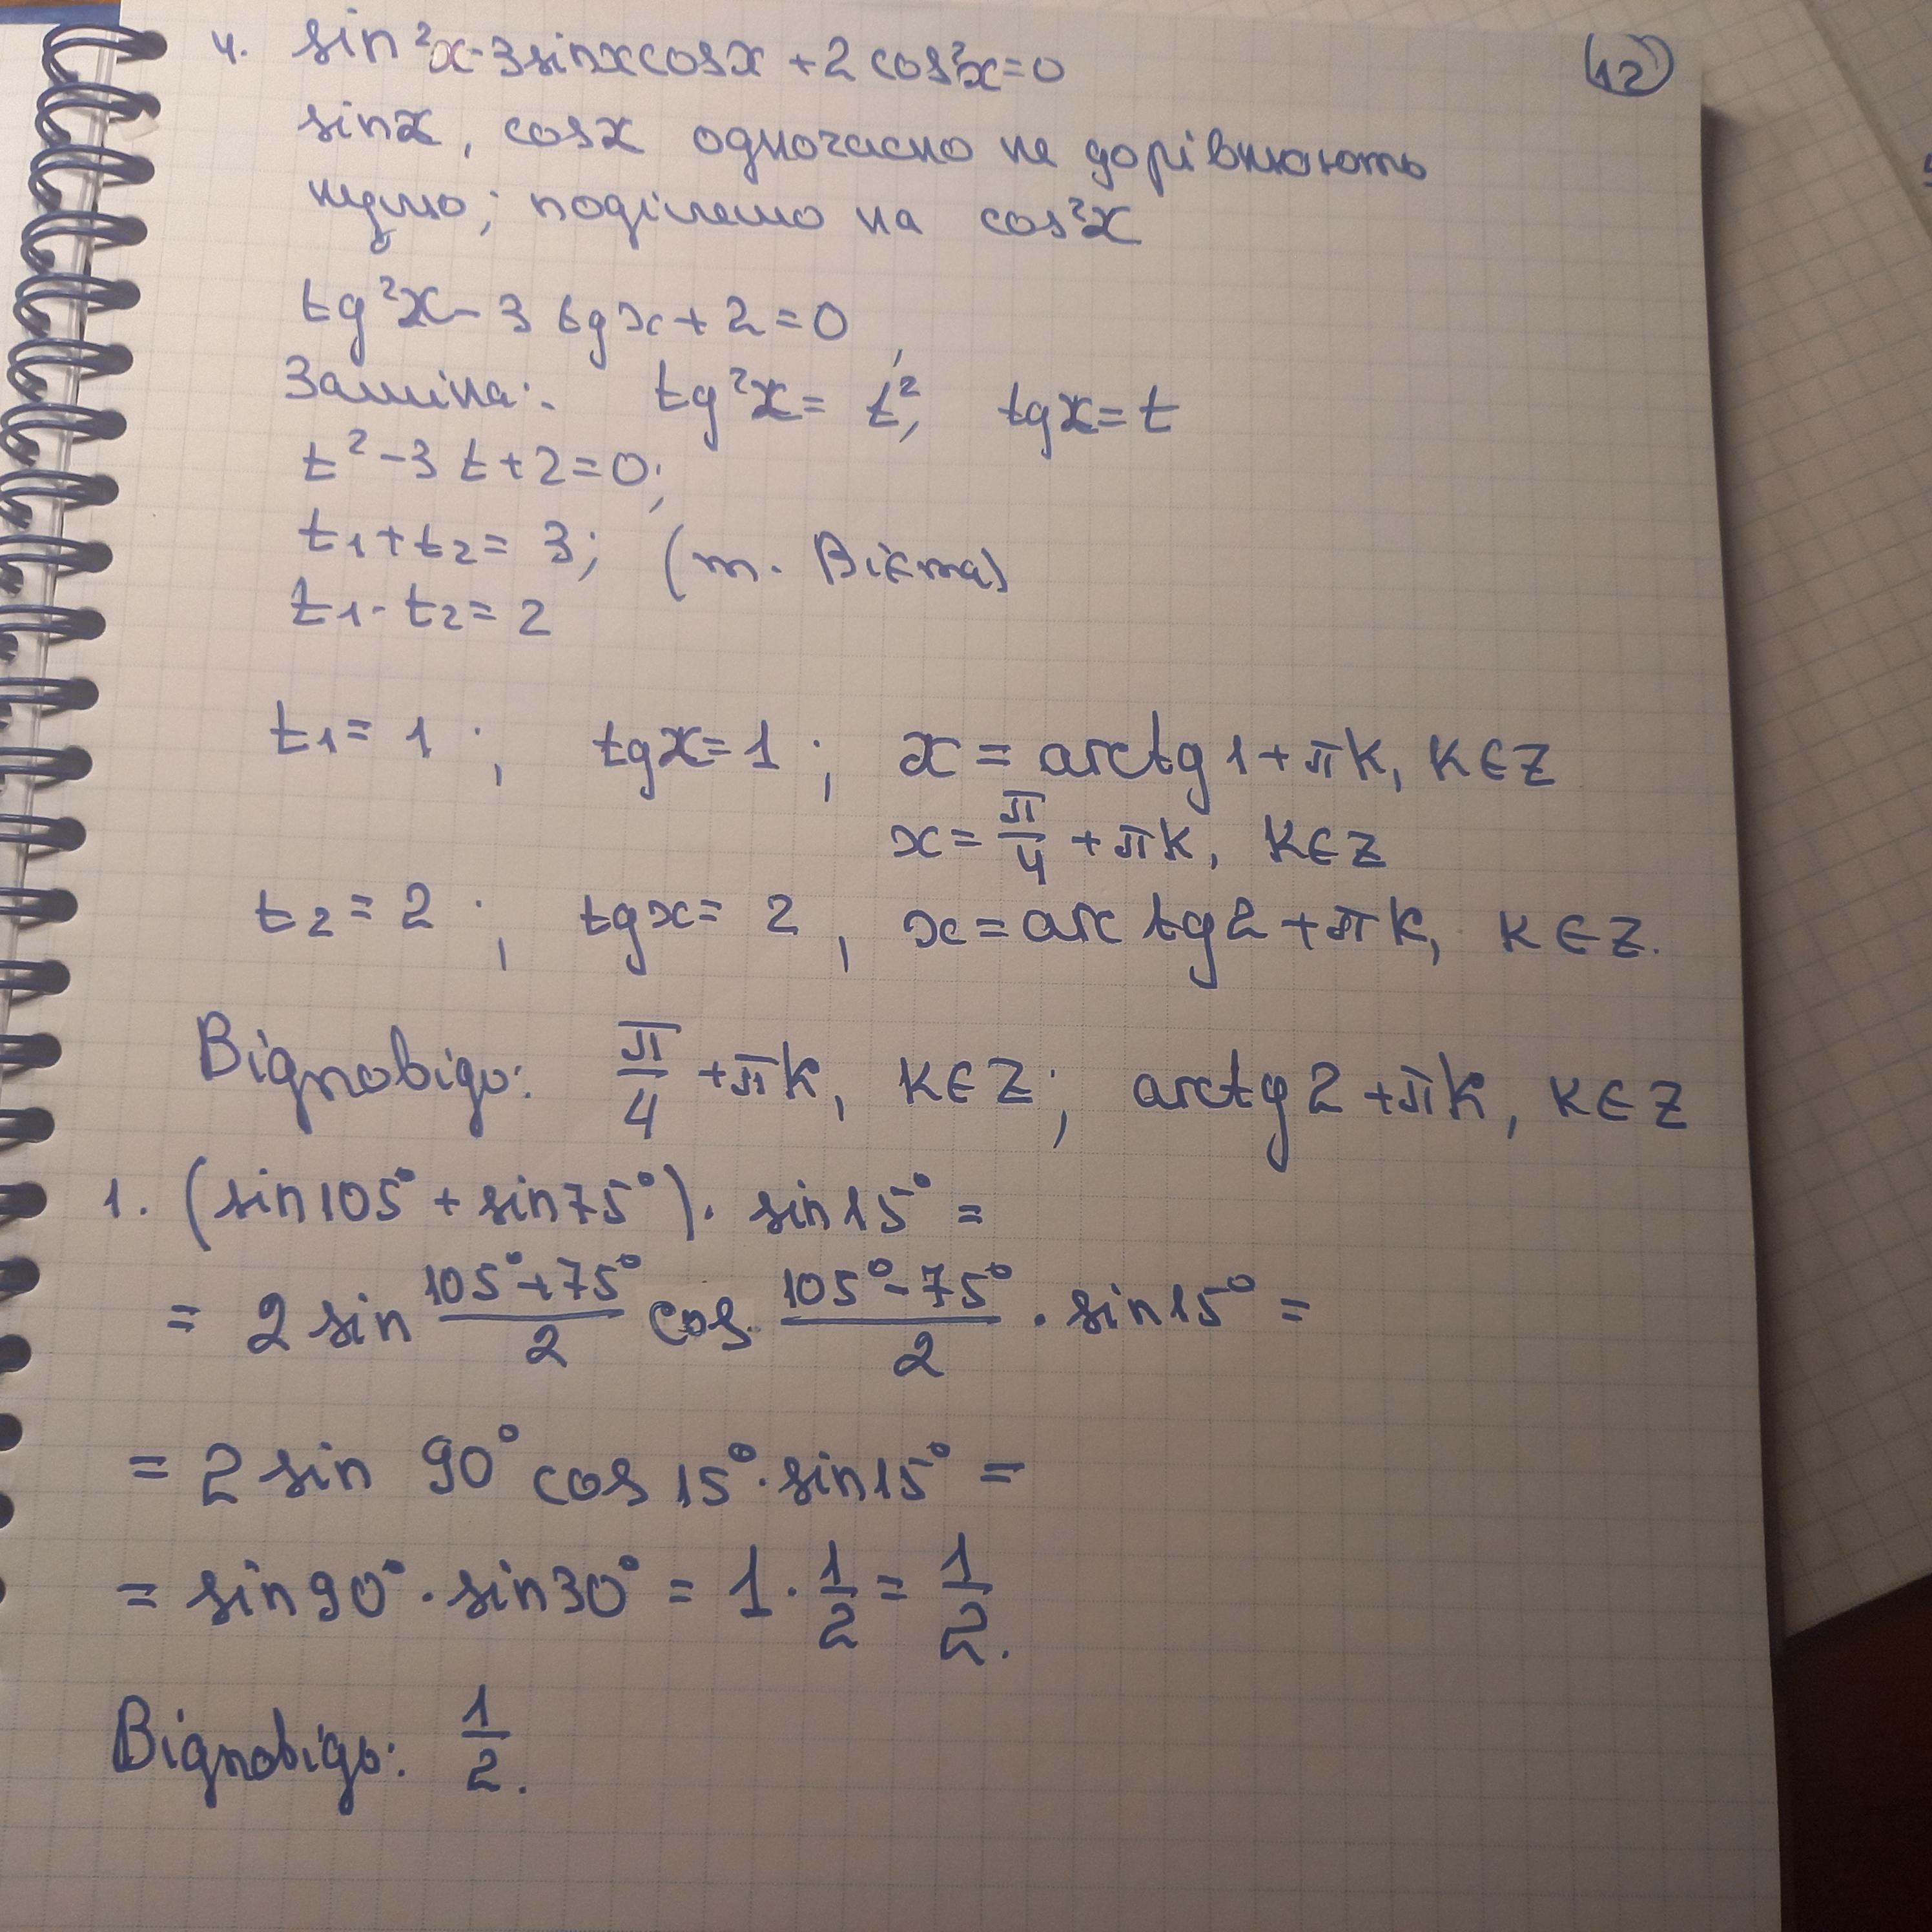 4. sin²x - 3sinxcosx + 2cos²x=0
(12)
sinx, cosx одночасно не дорівнюють
нулю; поділемо на cos²x
tg²x - 3 tgx + 2 = 0,
Заміна: tg²x = t², tgx = t
t² - 3t + 2 = 0;
t₁ + t₂ = 3; (т. Вієта)
t₁ · t₂ = 2
t₁ = 1; tgx = 1; x = arctg 1 + πk, k∈Z
x = π/4 + πk, k∈Z
t₂ = 2; tgx = 2, x = arctg2 + πk, k∈Z.
Відповідь: π/4 + πk, k∈Z; arctg 2 + πk, k∈Z
1. (sin105° + sin75°) · sin15° =
= 2 sin (105°+75°)/2 cos (105°-75°)/2 · sin15° =
= 2 sin 90° cos 15° · sin15° =
= sin90° · sin30° = 1 · 1/2 = 1/2.
Відповідь: 1/2.